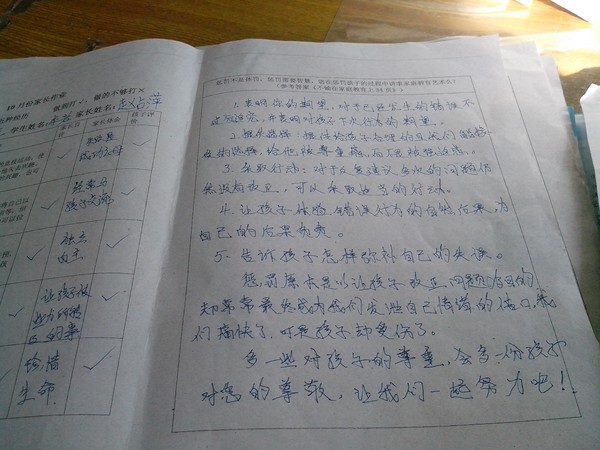 10月份家长作业
做到打✓,做的不够打×
学生姓名:
家长姓名:赵占萍
家长体会
孩子评价
成功之母
经常与
孩子交流
独立
自主
让孩子做
的事
珍惜
生命
惩罚不是体罚,惩罚需要智慧,您在惩罚孩子的过程中讲求家庭教育艺术么?
1. 表明你的期望,对于已经发生的错误不
过于追究,并表明对孩子下次行为的期望。
2. 提供选择:提供给孩子合理的且我们能够接
受的选择,给他以尊重感,而不是被胁迫感。
3. 采取行动:对于反复建议多次的问题仍
然没有改正,可以采取适当的行动。
4. 让孩子体验错误行为的自然后果,为
自己的后果负责。
5. 告诉孩子怎样弥补自己的失误。
惩罚原本是以让孩子改正问题为目的,
却常常最终成为我们发泄自己情绪的借口,我
们痛快了,可是孩子却受伤了。
多一些对孩子的尊重,会多一份孩子
对您的尊敬,让我们一起努力吧!